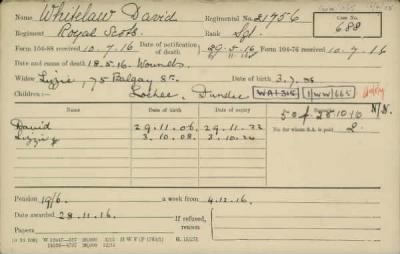 Name Whitelaw David Regimental No. 21756 Case No. 688
Regiment Royal Scots. Rank Sgt.
Form 104-88 received 10.7.16 Date of notification of death 29.5.16 Form 104-76 received 10.7.16
Date and cause of death 18.5.16. Wounds
Widow Lizzie, 75 Balgay St. Date of birth 3.7.
Children: Lochee, Dundee WA 1 WW 665
Name Date of birth Date of expiry Remarks N/N.
David 29.11.06. 29.11.22
Lizzie 3.10.08. 3.10.24
No. for whom S.A. is paid 2
Pension 19/6 a week from 4.12.16.
Date awarded 28.11.16. If refused, reason